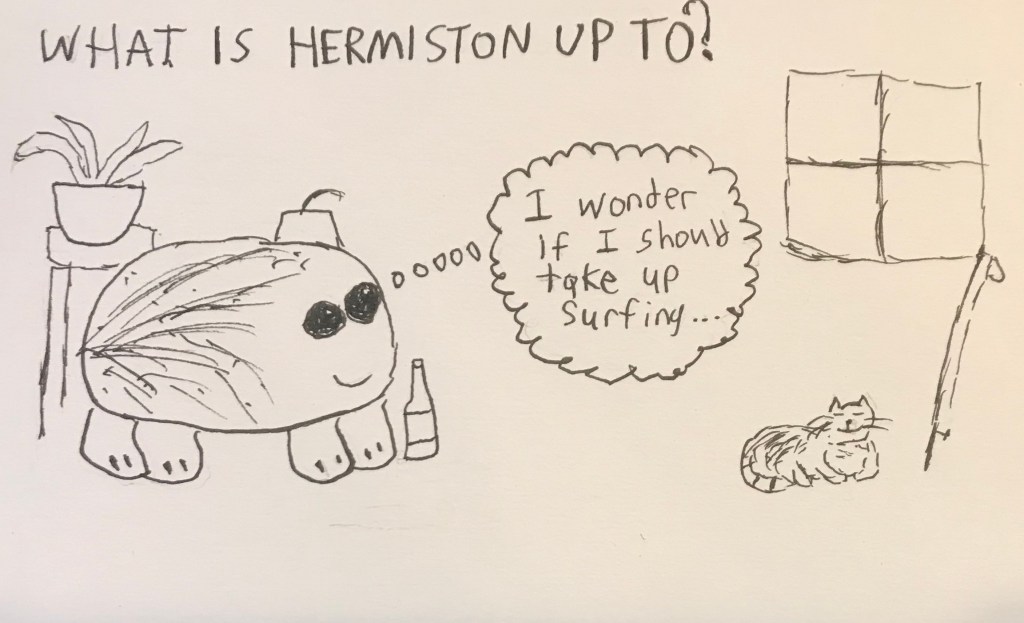 WHAT IS HERMISTON UP TO?
I wonder
if I should
take up
surfing...